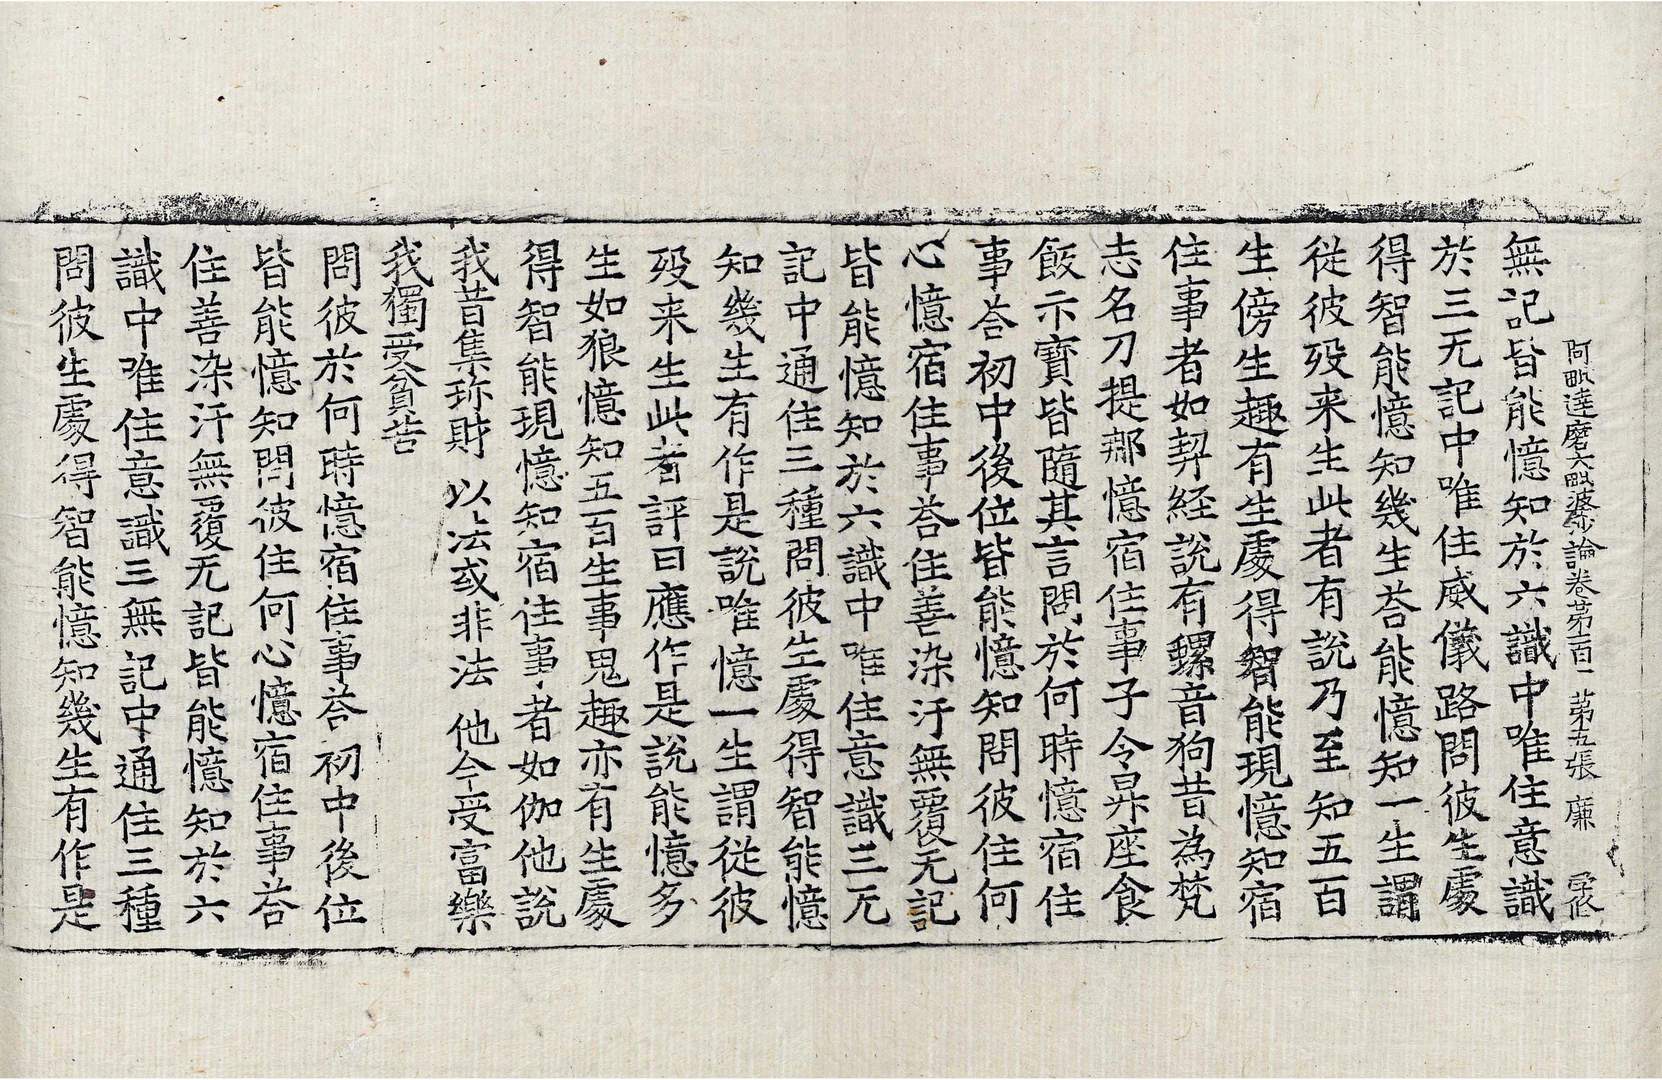 阿毗達磨大毗婆沙論卷苐一百一 苐五張 廉
無記皆能憶知於六識中唯住意識
於三无記中唯住威儀路問彼生處
得智能憶知幾生荅能憶知一生謂
從彼歿来生此者有說乃至知五百
生傍生趣有生處得智能現憶知宿
住事者如契経說有螺音狗昔為梵
志名刀提那憶宿住事子令昇座食
飯示寶皆隨其言問於何時憶宿住
事荅初中後位皆能憶知問彼住何
心憶宿住事荅住善染汙無覆无記
皆能憶知於六識中唯住意識三无
記中通住三種問彼生處得智能憶
知幾生有作是說唯憶一生謂從彼
歿来生此者評曰應作是說能憶多
生如狼憶知五百生事鬼趣亦有生處
得智能現憶知宿住事者如伽他說
我昔集珎財 以法或非法 他今受富樂
我獨受貧苦
問彼於何時憶宿住事荅初中後位
皆能憶知問彼住何心憶宿住事荅
住善染汙無覆无記皆能憶知於六
識中唯住意識三無記中通住三種
問彼生處得智能憶知幾生有作是